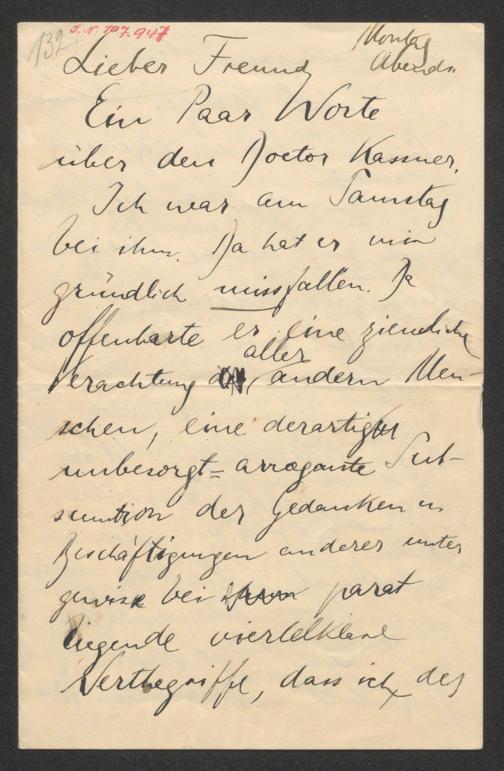 132 I.N. 107.947
Montag
Abends.
Lieber Freund
Ein Paar Worte
über den Doctor Kassner.
Ich war am Samstag
bei ihm. Da hat er mir
gründlich missfallen. Da
offenbarte er eine ziemliche
Verachtung aller andern Men-
schen, eine derartige
unbesorgt-arrogante Sub-
sumtion der Gedanken u
Beschäftigungen anderer unter
gewisse bei parat
liegende viertelklare
Werthegriffe, dass ich des